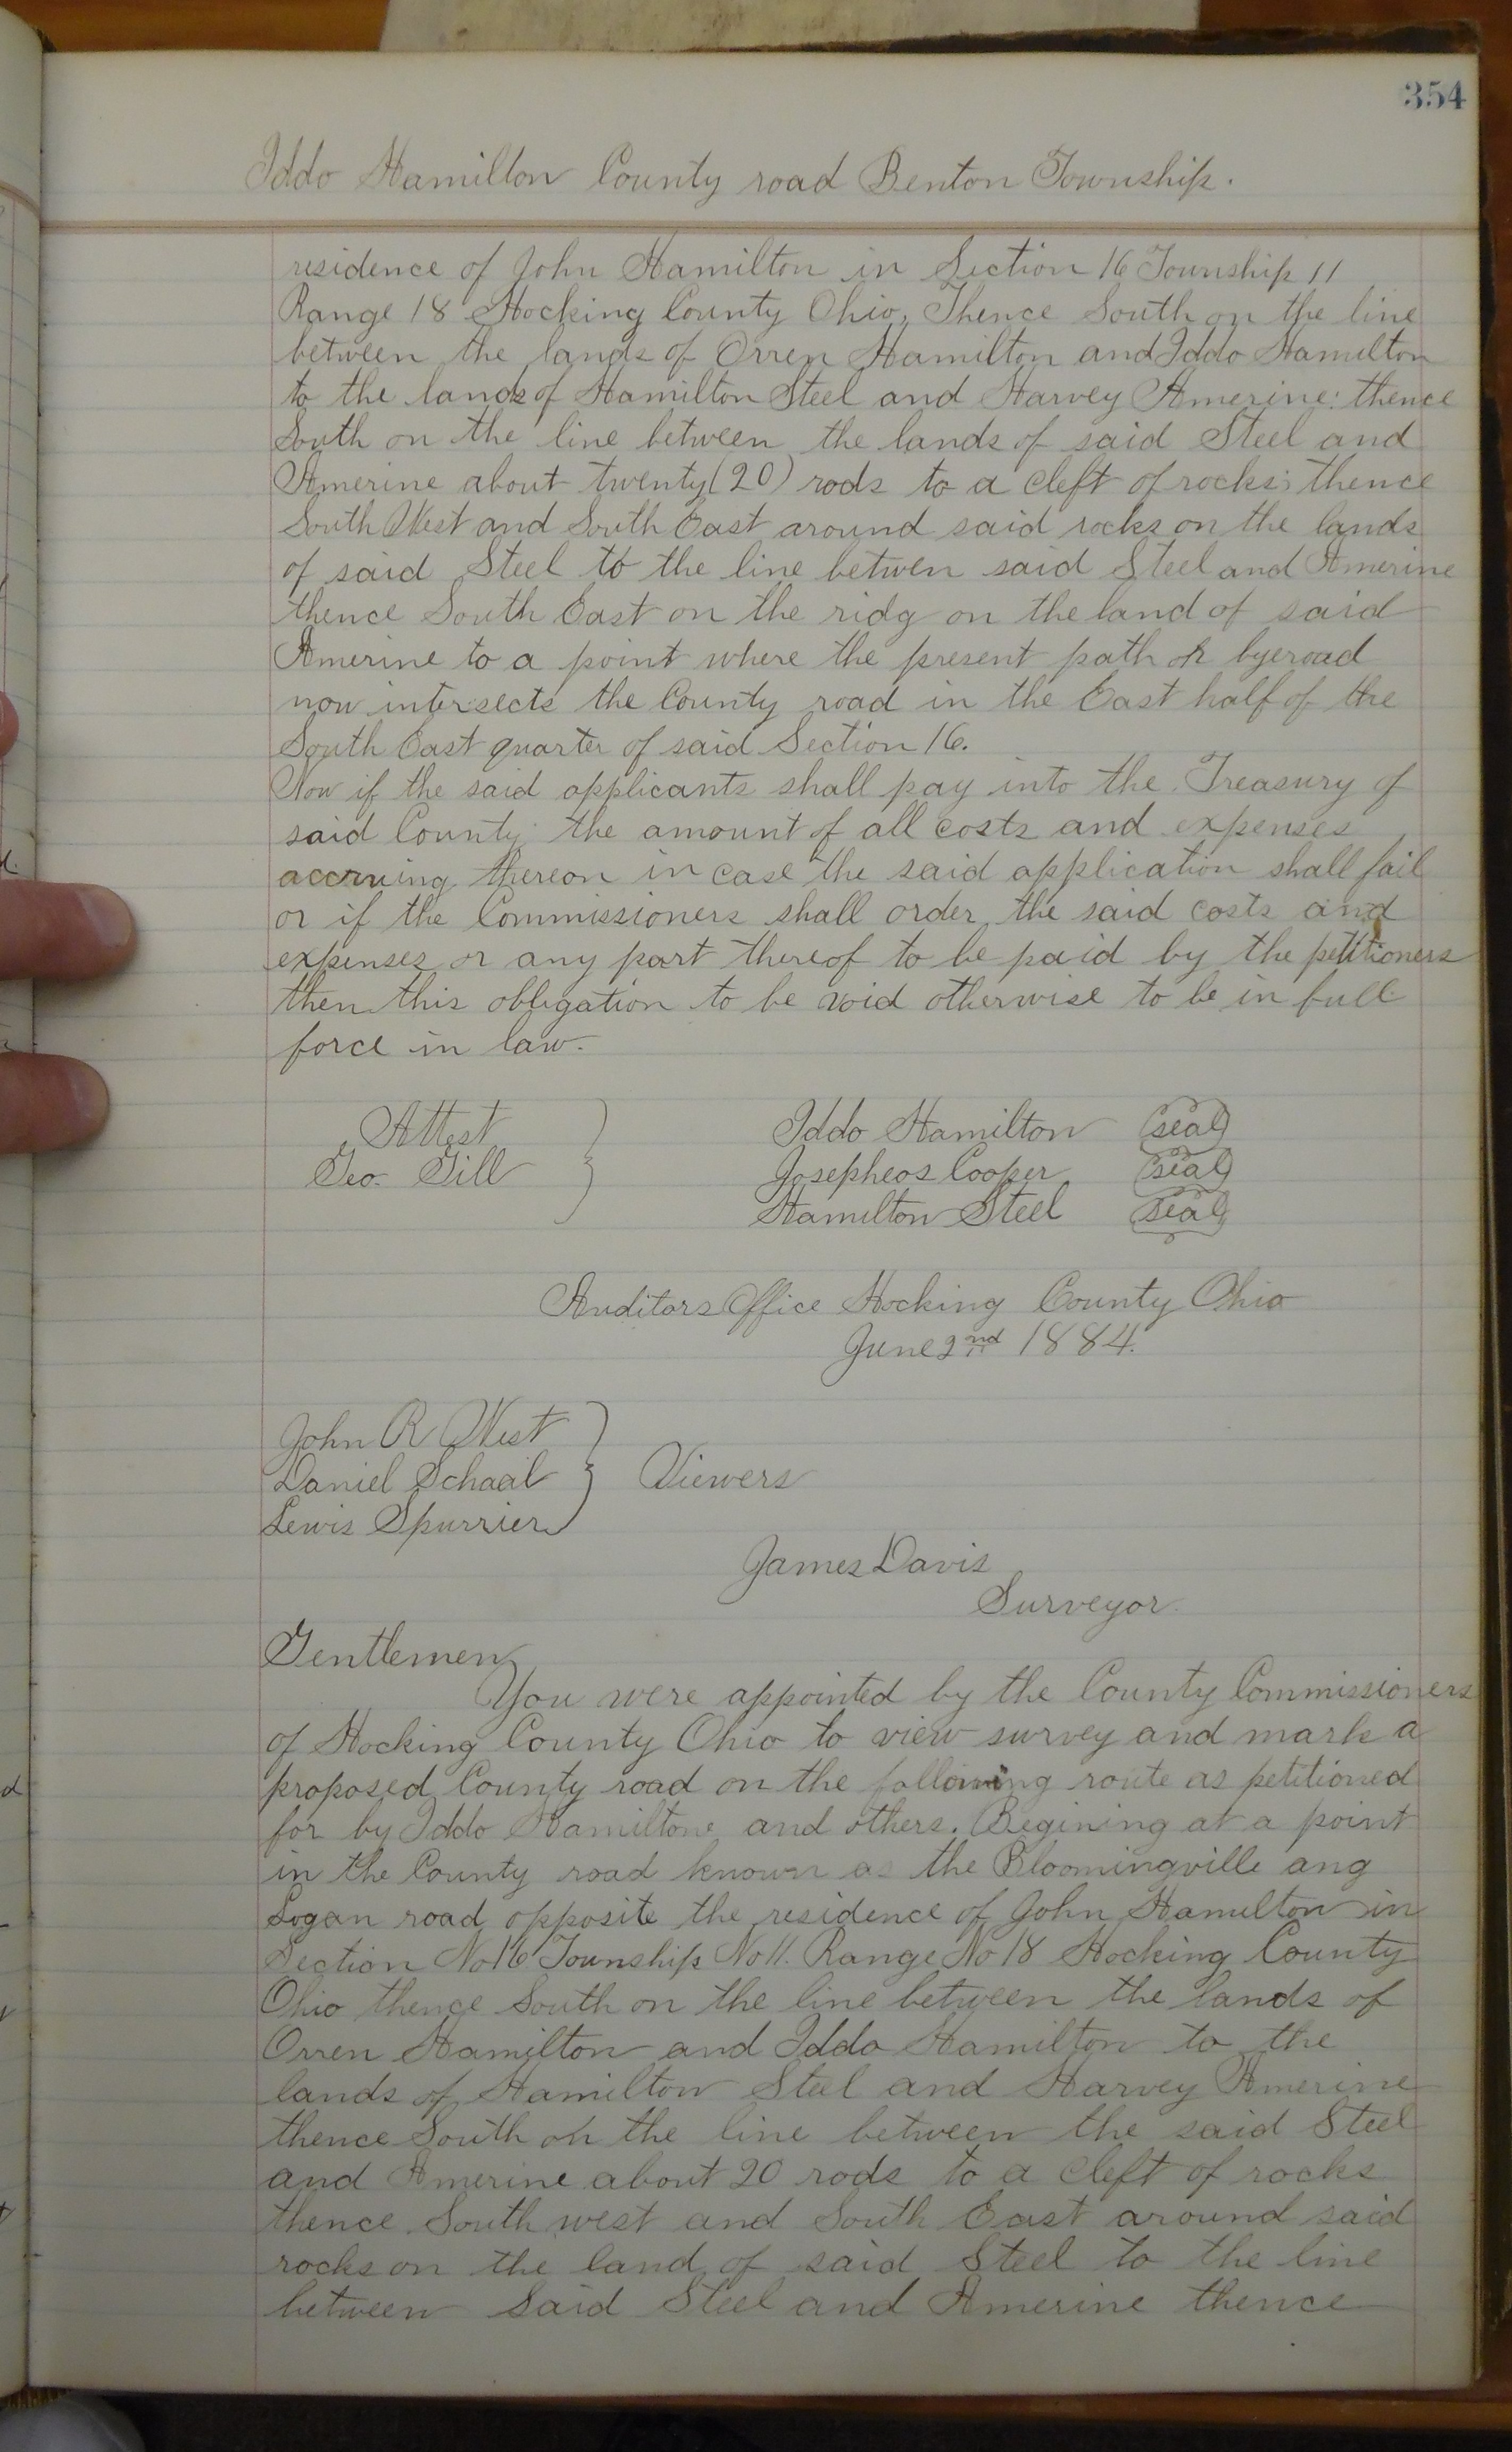 354
Iddo Hamilton County road Benton Township.
residence of John Hamilton in Section 16 Township 11
Range 18 Hocking County Ohio, Thence South on the line
between the lands of Orren Hamilton and Iddo Hamilton
to the lands of Hamilton Steel and Harvey Amerine: thence
South on the line between the lands of said Steel and
Amerine about twenty (20) rods to a cleft of rocks; thence
South West and South East around said rocks on the lands
of said Steel to the line betwen said Steel and Amerine
thence South East on the ridg on the land of said
Amerine to a point where the present path or byeroad
now intersects the County road in the East half of the
South East quarter of said Section 16.
Now if the said applicants shall pay into the Treasury of
said County the amount of all costs and expenses
accruing thereon in case the said application shall fail
or if the Commissioners shall order the said costs and
expenses or any part thereof to be paid by the petitioners
then this obligation to be void otherwise to be in full
force in law.
Attest } Iddo Hamilton (seal)
Geo. Gill Josepheos Cooper (seal)
Hamilton Steel (seal)
Auditors Office Hocking County Ohio
June 2nd 1884.
John R West }
Daniel Schaal } Viewers
Lewis Spurrier
James Davis
Surveyor.
Gentlemen
You were appointed by the County Commissioners
of Hocking County Ohio to view survey and mark a
proposed County road on the following route as petitioned
for by Iddo Hamiltone and others. Begining at a point
in the County road known as the Bloomingville ang
Logan road opposite the residence of John Hamilton in
Section No 16 Township No 11. Range No 18 Hocking County
Ohio thence South on the line between the lands of
Orren Hamilton and Iddo Hamilton to the
lands of Hamilton Steel and Harvey Amerine
thence South on the line between the said Steel
and Amerine about 20 rods to a cleft of rocks
thence South west and South East around said
rocks on the land of said Steel to the line
between said Steel and Amerine thence